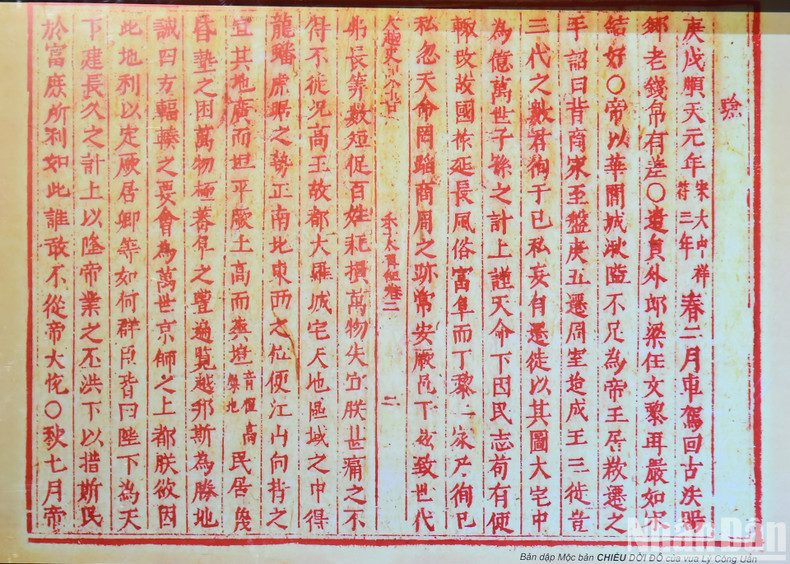 驗
庚戌順天元年宋大中祥符三年春二月車駕回古法賜
鄉老錢帛有差〇遣員外郎梁任文黎再嚴如宋
結好〇帝以華閭城湫隘不足為帝王居欲遷之
手詔曰昔商家至盤庚五遷周室迨成王三徙豈
三代之數君徇于己私妄自遷徙以其圖大宅中
為億萬世子孫之計上謹天命下因民志苟有便
輒改故國祚延長風俗富阜而丁黎二家乃徇己
私忽天命罔蹈商周之跡常安厥邑于茲致世代
大越史記全書 卷二 二
弗長筭數短促百姓耗損萬物失宜朕甚痛之不
得不徙況高王故都大羅城宅天地區域之中得
龍蟠虎踞之勢正南北東西之位便江山向背之
宜其地廣而坦平厥土高而爽塏音愷高燥地民居蔑
昏墊之困萬物極蕃阜之豐遍覽越邦斯為勝地
誠四方輻輳之要會為萬世京師之上都朕欲因
此地利以定厥居卿等如何群臣皆曰陛下為天
下建長久之計上以隆帝業之丕洪下以措斯民
於富庶所利如此誰敢不從帝大悅〇秋七月帝
NhânDân
Bản dập Mộc bản CHIẾU DỜI ĐÔ của vua Lý Công Uẩn